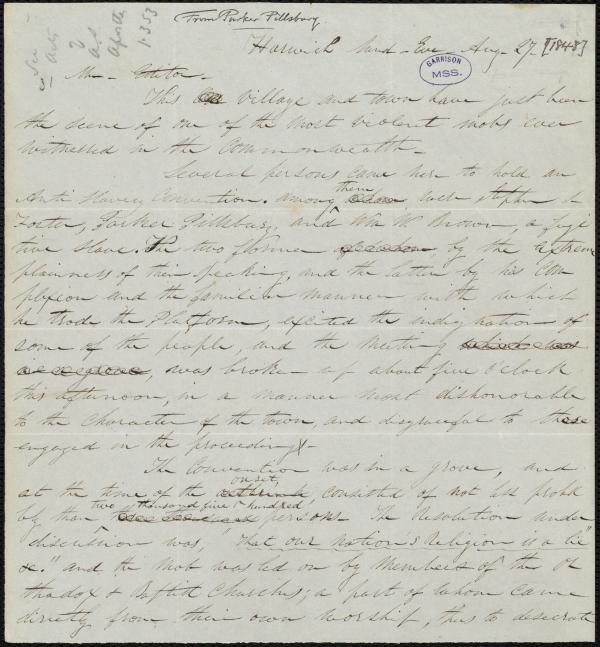 From Parker Pillsbury.
See
Acts
of
a.s.
Apostles
p.353
Harwich Sund - Eve - Aug - 27. [1848]
GARRISON
MSS.
Mr - Editor -
This village and town have just been
the scene of one of the most violent mobs ever
witnessed in the Commonwealth -
Several persons came here to hold an
Anti Slavery Convention. Among them were Stephen S.
Foster, Parker Pillsbury, and Wm W Brown, a fugi
tive slave. The two former by the extreme
plainness of their speaking, and the latter by his com
plexion and the familiar manner with which
he trode the Platform, excited the indignation of
some of the people, and the meeting which was
in a grove, was broken up about five o'clock
this afternoon, in a manner most dishonorable
to the character of the town, and disgraceful to those
engaged in the proceedings -
The Convention was in a grove, and
at the time of the onset, consisted of not less probab
ly than two thousand five hundred persons. The Resolution under
discussion was, "that our nation's religion is a lie"
&c." and the mob was led on by Members of the Or
thodox & Baptist Churches; a part of whom came
directly from their own worship, thus to desecrate